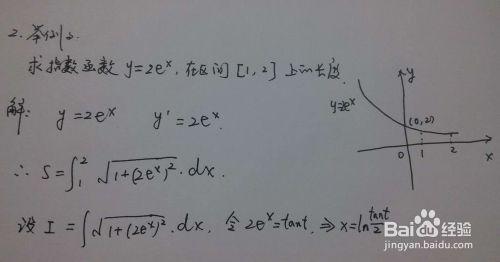 2. 举例2.
求指数函数 y=2eˣ, 在区间 [1, 2] 上的长度.
解: y=2eˣ y'=2eˣ.
∴ S=∫₁² √(1+(2eˣ)²)·dx.
设 I=∫√(1+(2eˣ)²)·dx, 令 2eˣ=tant, ⇒ x=ln tant/2
y
y=2eˣ
(0,2)
0 1 2 x
Baidu 经验
jingyan.baidu.com